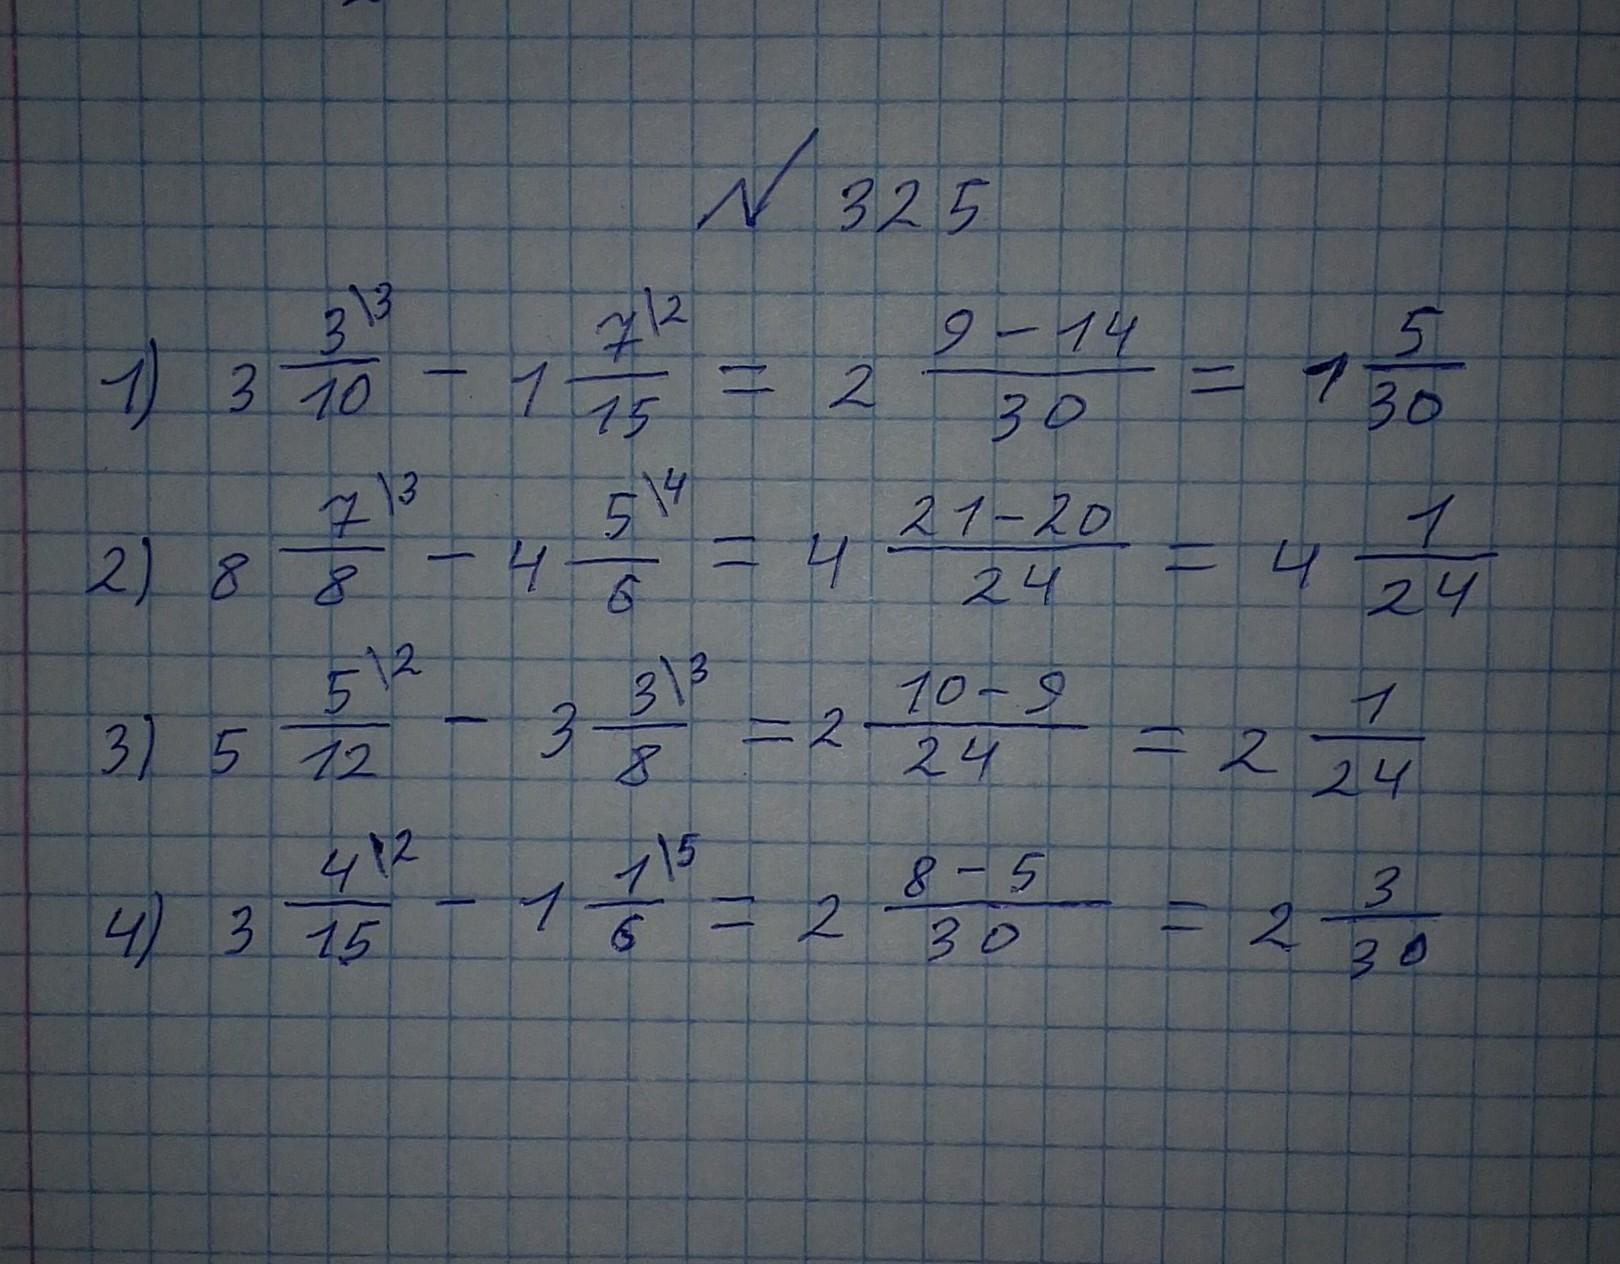 № 325
1) 3 3\3/10 - 1 7\2/15 = 2 9-14/30 = 1 5/30
2) 8 7\3/8 - 4 5\4/6 = 4 21-20/24 = 4 1/24
3) 5 5\2/12 - 3 3\3/8 = 2 10-9/24 = 2 1/24
4) 3 4\2/15 - 1 1\5/6 = 2 8-5/30 = 2 3/30